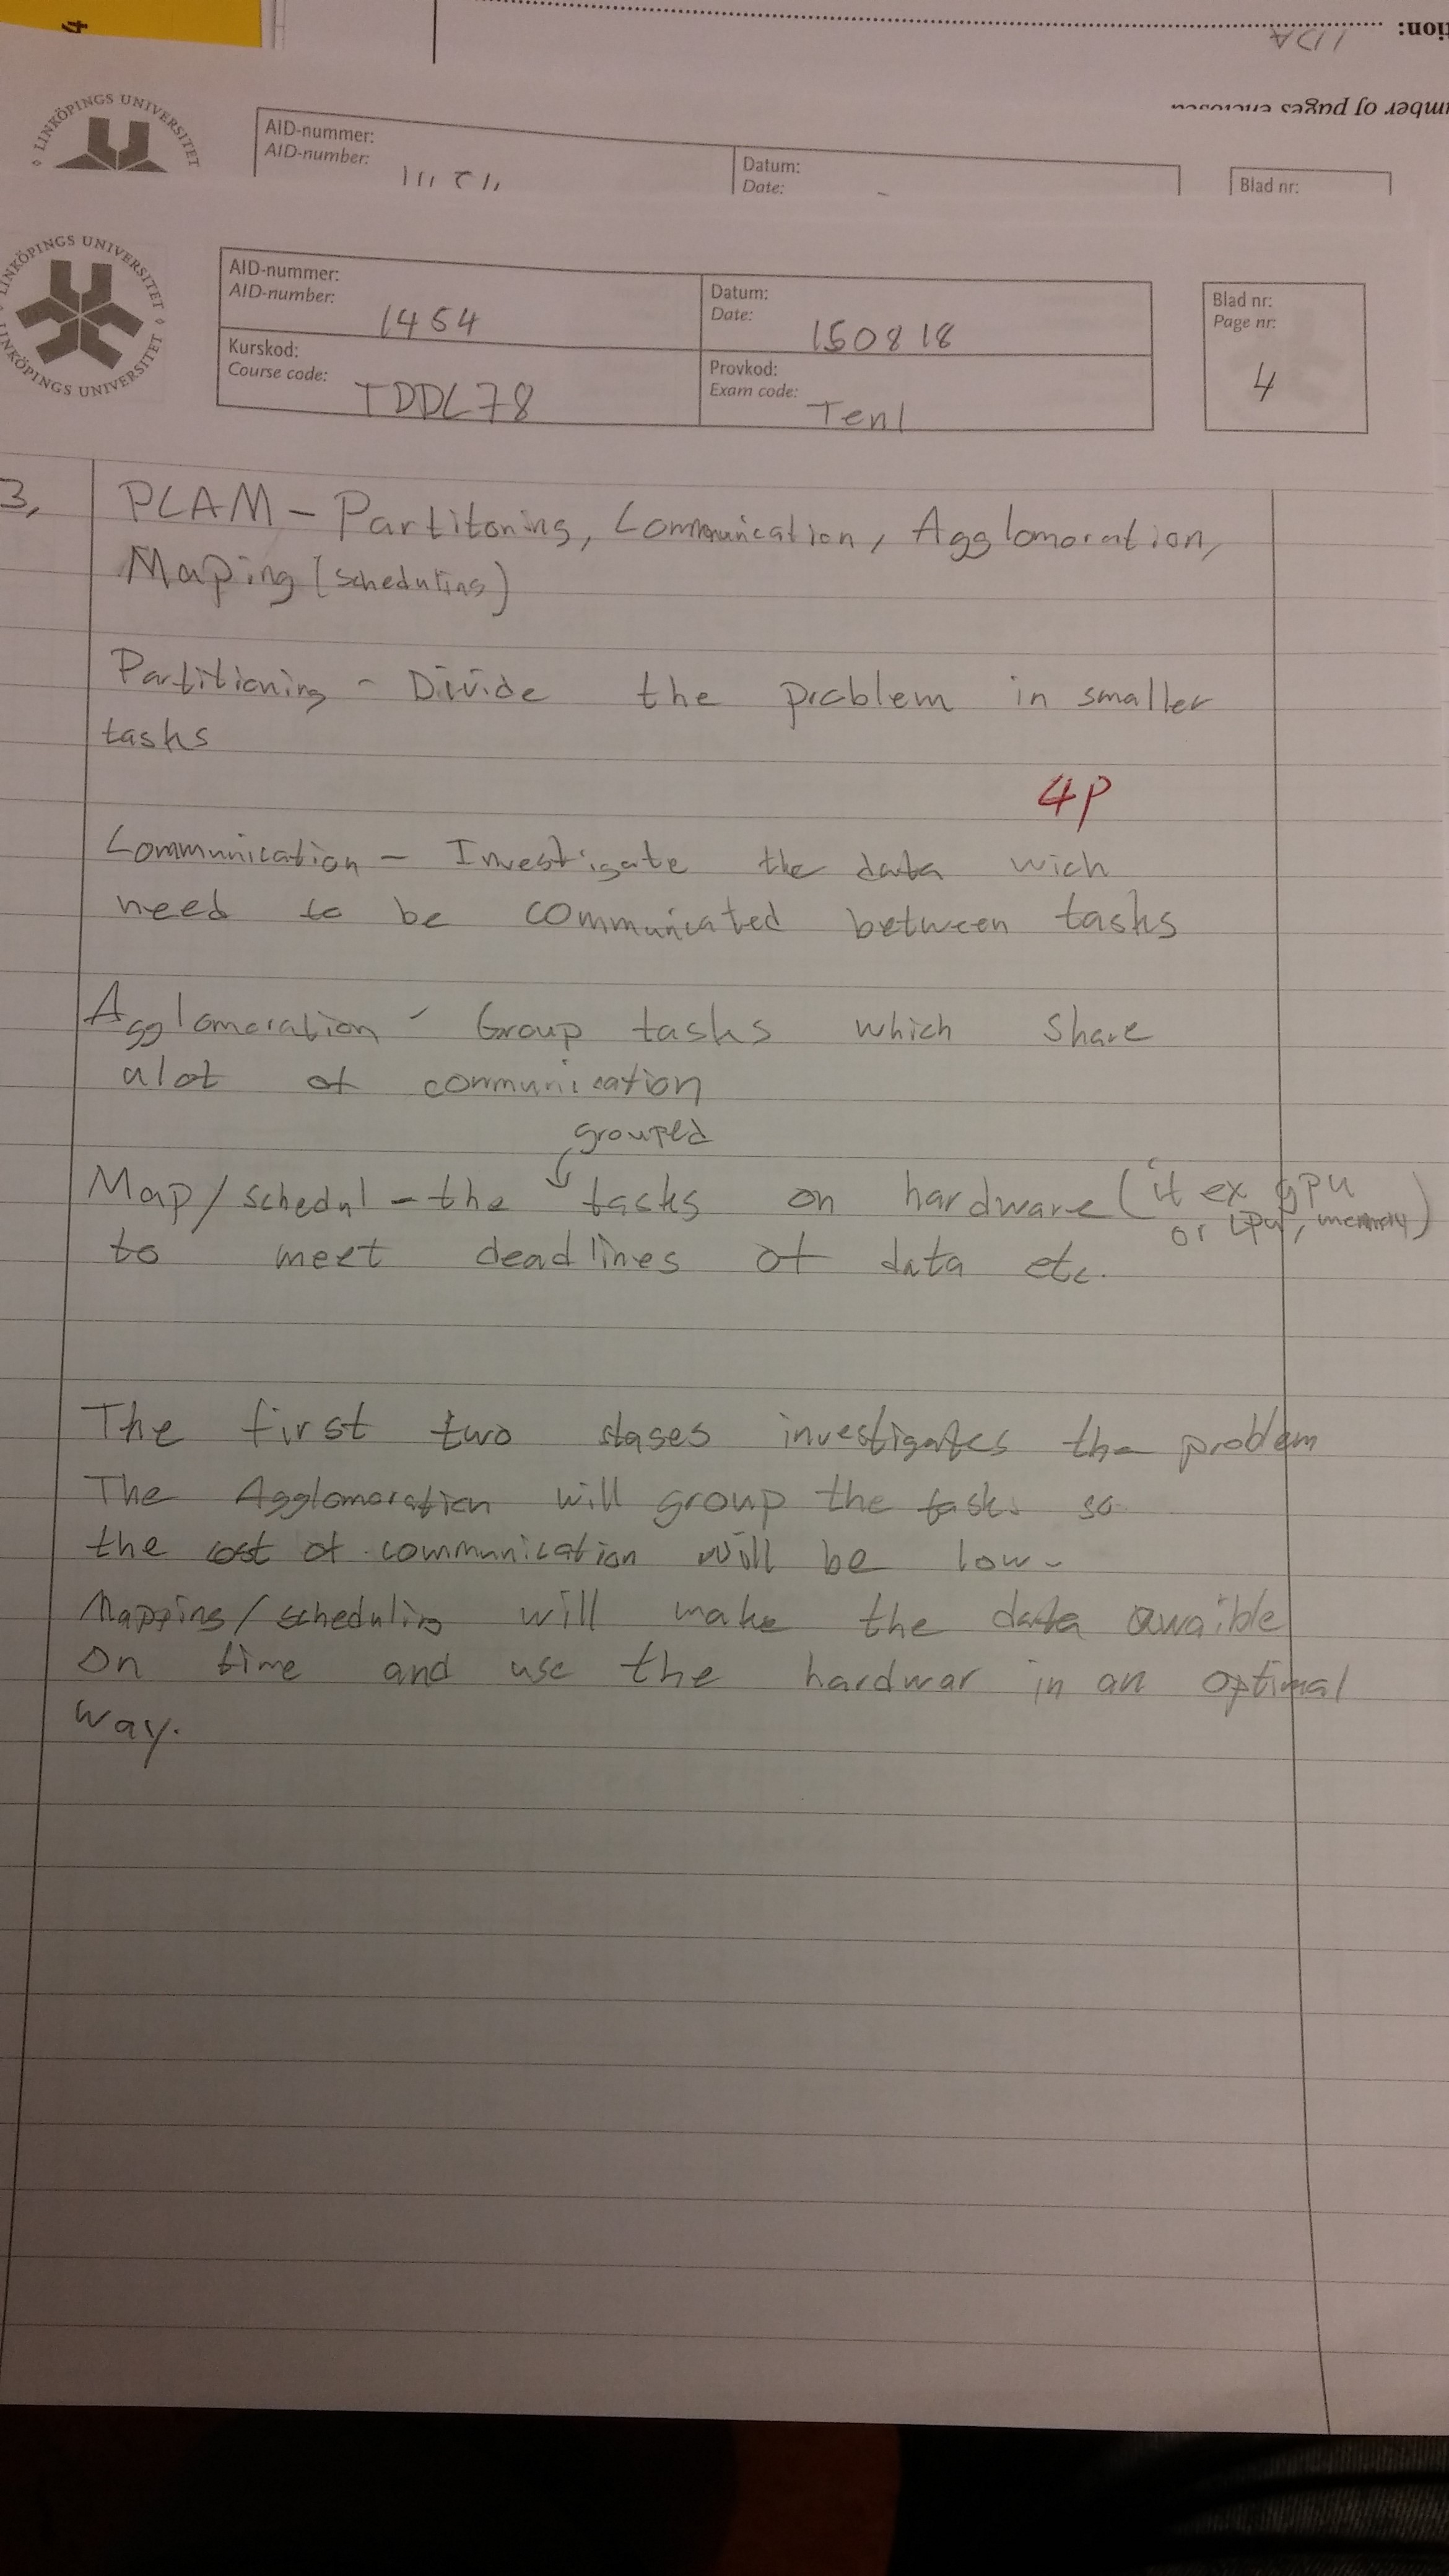 tion:
IDA
mber of pages enclosed
4
LINKÖPINGS UNIVERSITET
AID-nummer:
AID-number:
Datum:
Date:
Blad nr:
LINKÖPINGS UNIVERSITET
LINKÖPINGS UNIVERSITET
AID-nummer:
AID-number: 1454
Datum:
Date: 150818
Blad nr:
Page nr:
4
Kurskod:
Course code: TDDC78
Provkod:
Exam code: Ten1
3, PCAM - Partitoning, Communication, Agglomoration,
Maping (scheduling)
Partitioning - Divide the problem in smaller
tasks
4P
Communication - Investigate the data wich
need to be communicated between tasks
Agglomoration - Group tasks which share
alot of communication
grouped
Map/schedul - the tasks on hardware (it ex gpu
or cpu, memory)
to meet deadlines of data etc.
The first two stages investigates the problem
The Agglomoration will group the tasks so
the cost of communication will be low.
Mapping/scheduling will make the data avaible
on time and use the hardwar in an optimal
way.